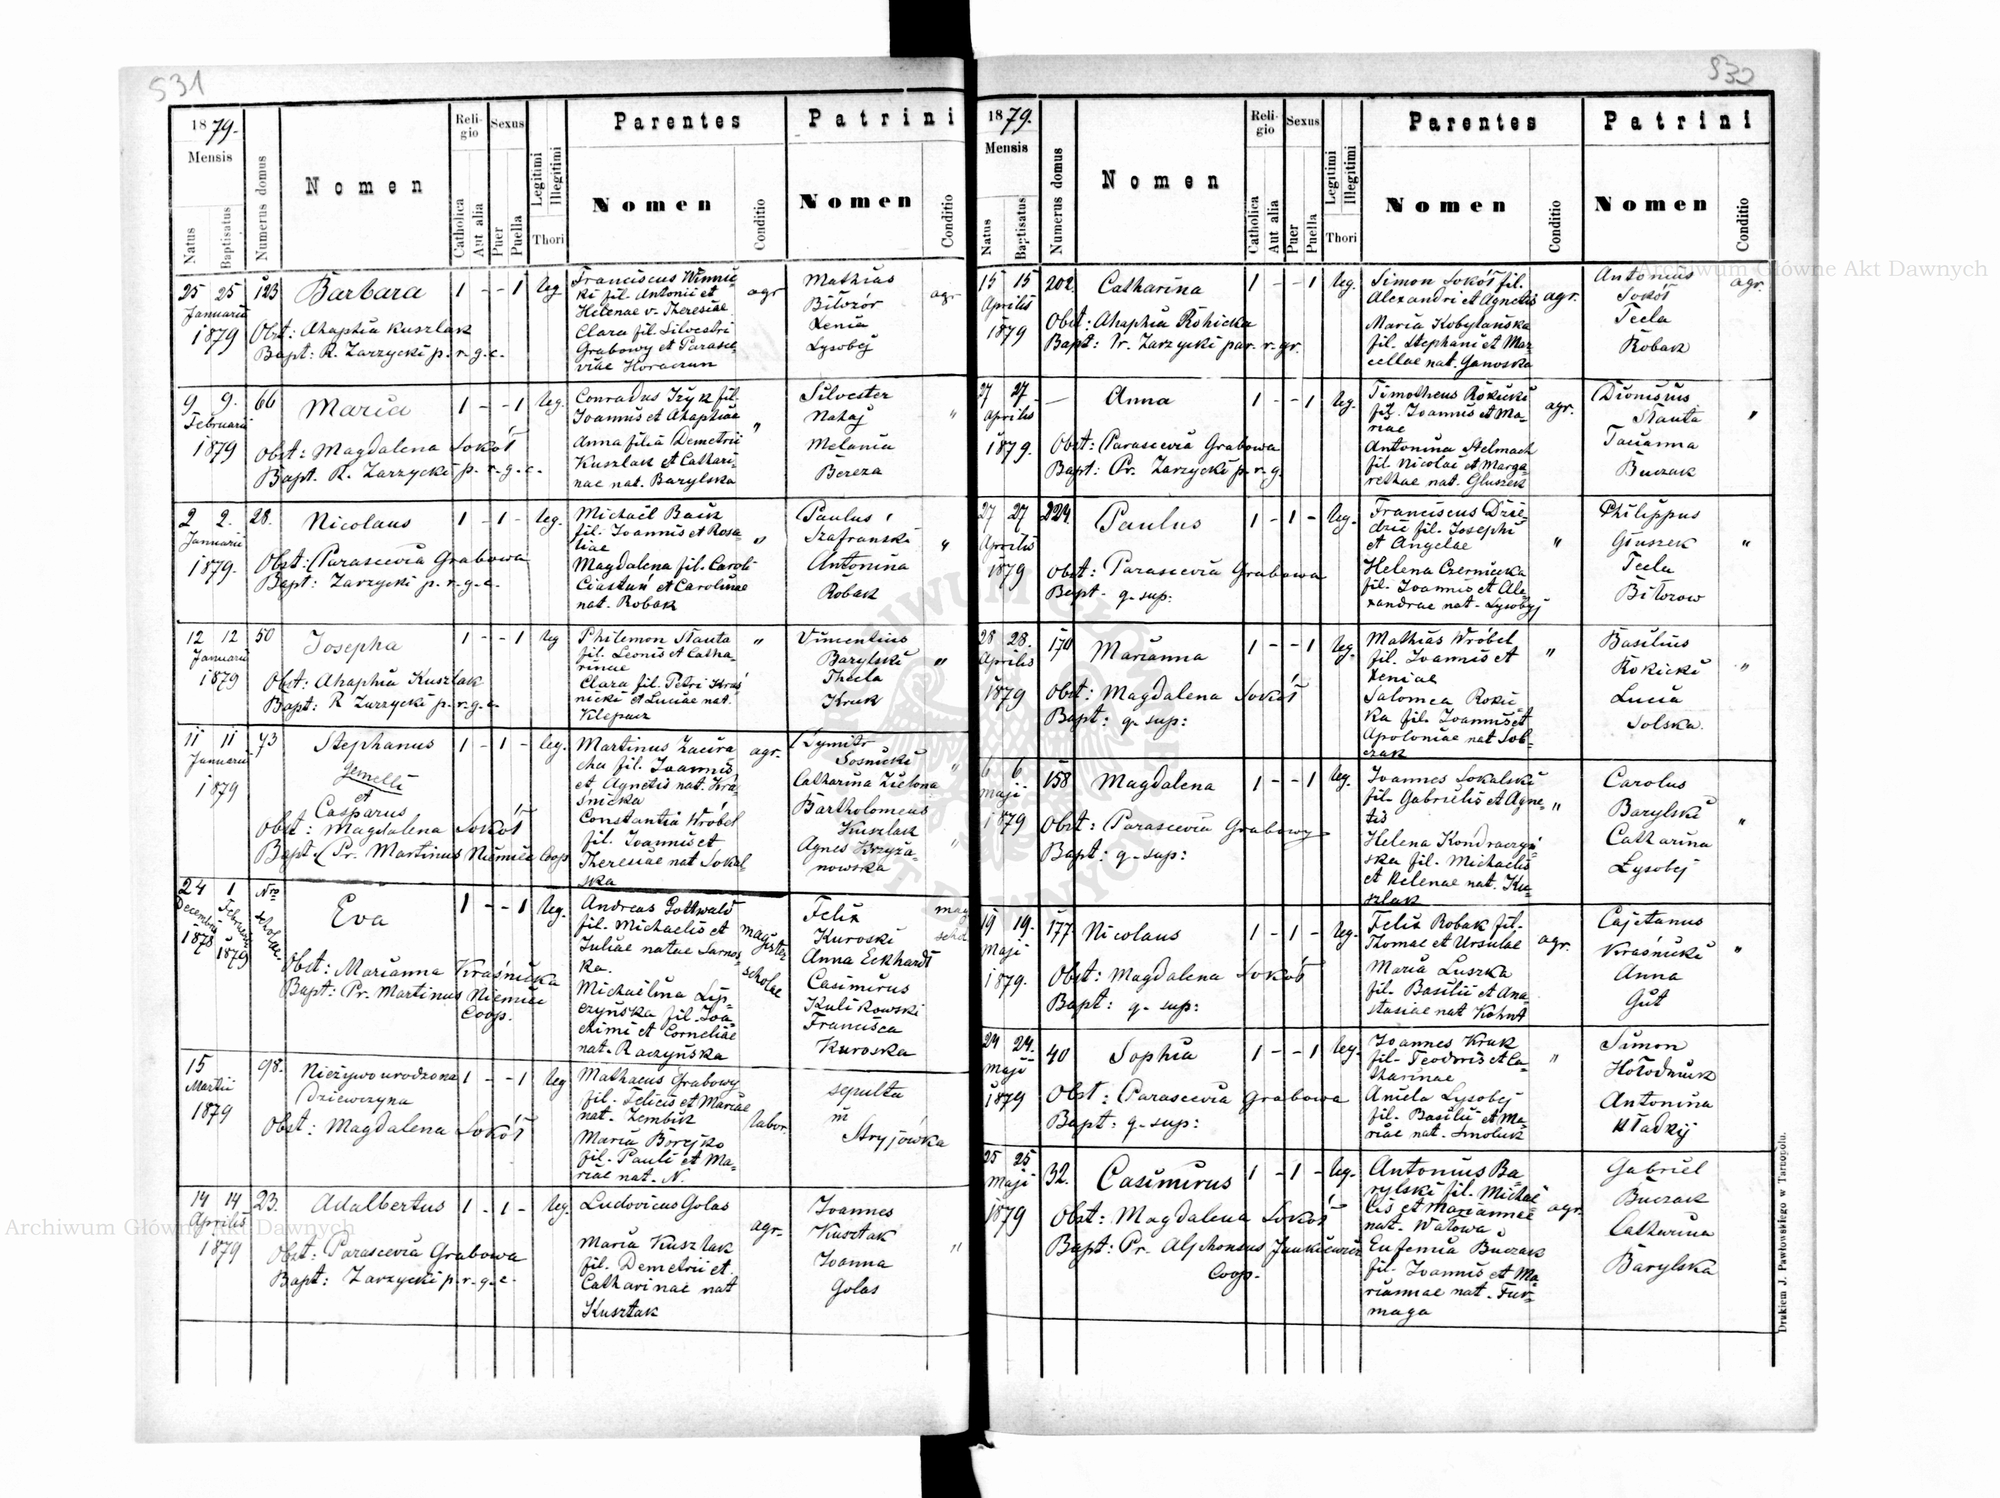 531
1879.
Mensis
Natus
Baptisatus
Numerus domus
Nomen
Religio
Catholica
Aut alia
Sexus
Puer
Puella
Legitimi
Illegitimi
Thori
Parentes
Nomen
Conditio
Patrini
Nomen
Conditio
25 25 123 Barbara 1 - - 1 leg
Januarii
1879
Obst: Ahaphia Kuszlak
Bapt: R. Zarzycki p. r. g. c.
Franciscus Winnic-
ki fil. Antonii et
Helenae v. Theresiae
Clara fil. Silvestri
Grabowy et Parasce-
viae Horaczun
agr
Mathias
Bilozor
Xenia
Lysobej
agr
9 9. 66 Maria 1 - - 1 leg.
Februarii
1879
Obst: Magdalena Sokół
Bapt. R. Zarzycki p. r. g. c.
Conradus Izyk fil.
Joannis et Ahaphiae
Anna filia Demetrii
Kuszlak et Cathari-
nae nat. Barylska
"
Silvester
Nahaj
Melania
Bereza
"
2 2. 28. Nicolaus 1 - 1 - leg.
Januarii
1879.
Obst: Parascevia Grabowa
Bapt: Zarzycki p. r. g. c.
Michaël Bauk
fil. Joannis et Rosa-
liae
Magdalena fil. Caroli
Ciastuń et Carolinae
nat. Robak
"
Paulus
Szafranski
Antonina
Robak
"
12 12 50 Josepha 1 - - 1 leg
Januarii
1879
Obst: Ahaphia Kuszlak
Bapt: R Zarzycki p. r. g. c.
Philemon Nauta
fil. Leonis et Catha-
rinae
Clara fil. Petri Kraś-
nicki et Luciae nat.
Klepacz
"
Vincentius
Barylski
Thecla
Kruk
"
11 11 73 Stephanus 1 - 1 - leg.
Januarii
1879
gemelli
et
Casparus
Obst: Magdalena Sokół
Bapt. Pr. Martinus Niemiec Coop
Martinus Zaura
cha fil. Joannis
et Agnetis nat. Kra-
śnicka
Constantia Wróbel
fil. Joannis et
Theresiae nat Sokal-
ska
agr.
Dymitr
Sosnicki
Catharina Zielona
Bartholomeus
Kuszlak
Agnes Krzyża-
nowska
"
24 1 Nro scholae. Eva 1 - - 1 leg.
Decembris Februarii
1878 1879
Obst: Marianna Kraśnicka
Bapt: Pr. Martinus Niemiec
Coop.
Andreas Gottwald
fil. Michaelis et
Juliae natae Sarnos-
ka.
Michaëlina Lip-
czyńska fil. Joa-
chimi et Corneliae
nat. Raczyńska
magister
scholae
Felix
Kuroski
Anna Eckhardt
Casimirus
Kulikowski
Francisca
Kuroska
mag
schol
15 98. Nieżywo urodzona 1 - - 1 leg
Martii
1879
Dziewczyna
Obst: Magdalena Sokół
Mathaeus Grabowy
fil. Felicis et Mariae
nat. Zembik
Maria Borejko
fil. Pauli et Ma-
riae nat. N.
labor.
sepulta
in
Stryjówka
14 14 23. Adalbertus 1 - 1 - leg.
Aprilis
1879
Obst: Parascevia Grabowa
Bapt: Zarzycki p. r. g. c.
Ludovicus Golas
Maria Kusztak
fil. Demetrii et
Catharinae nat
Kusztak
agr.
Joannes
Kusztak
Joanna
Golas
"
532
1879.
Mensis
Natus
Baptisatus
Numerus domus
Nomen
Religio
Catholica
Aut alia
Sexus
Puer
Puella
Legitimi
Illegitimi
Thori
Parentes
Nomen
Conditio
Patrini
Nomen
Conditio
15 15 202. Catharina 1 - - 1 leg.
Aprilis
1879
Obst: Ahaphia Rohicka
Bapt: Pr. Zarzycki par. r. gr.
Simon Sokół fil.
Alexandri et Agnetis
Maria Kobylańska
fil. Stephani et Mar-
cellae nat. Ganoska
agr.
Antonius
Sokół
Tecla
Robak
agr.
27 27 - Anna 1 - - 1 leg.
Aprilis
1879.
Obst: Parascevia Grabowa
Bapt: Pr. Zarzycki p. r. g.
Timotheus Rokicki
fil. Joannis et Ma-
riae
Antonina Stelmach
fil. Nicolai et Marga-
rethae nat. Gluszek
agr.
Dionisius
Nauta
Tacianna
Buczak
"
27 27 224. Paulus 1 - 1 - leg.
Aprilis
1879
Obst: Parascevia Grabowa
Bapt. q. sup:
Franciscus Dzie-
dzic fil. Josephi
et Angelae
Helena Czernicka
fil. Joannis et Ale-
xandrae nat. Lysobyj
"
Philippus
Głuszek
Tecla
Bilozow
"
28 28. 170 Marianna 1 - - 1 leg.
Aprilis
1879
Obst: Magdalena Sokół
Bapt: q. sup:
Mathias Wróbel
fil. Joannis et
Xeniae
Salomea Roki-
ka fil. Joannis et
Apoloniae nat Sob-
czak
"
Basilius
Rokicki
Lucia
Solska.
"
6 6 158 Magdalena 1 - - 1 leg.
Maji
1879
Obst: Parascevia Grabowy
Bapt: q. sup:
Joannes Sokalski
fil. Gabrielis et Agne-
tis
Helena Kondraczyń-
ska fil. Michaelis
et Helenae nat. Ku-
szlak
"
Carolus
Barylski
Catharina
Lysobej
"
19 19. 177 Nicolaus 1 - 1 - leg.
Maji
1879.
Obst: Magdalena Sokół
Bapt: q. sup:
Felix Robak fil.
Thomae et Ursulae
Maria Luszka
fil. Basilii et Ana-
stasiae nat Kohut
agr.
Cajetanus
Kraśnicki
Anna
Gut
"
24 24. 40 Sophia 1 - - 1 leg.
Maji
1879
Obst: Parascevia Grabowa
Bapt: q. sup:
Joannes Kruk
fil. Teodoris et Ca-
tharinae
Aniela Lysobej
fil. Basilii et Ma-
riae nat. Smoluk
"
Simon
Hołodniuk
Antonina
Hładkij
25 25 32. Casimirus 1 - 1 - leg.
Maji
1879
Obst: Magdalena Sokół
Bapt: Pr. Alphonsus Jankiewicz
Coop.
Antonius Ba-
rylski fil. Michaë-
lis et Mariannae
nat. Watowa
Eufemia Buczak
fil. Joannis et Ma-
riannae nat. Fur-
maga
agr.
Gabriel
Buczak
Catharina
Barylska
Drukiem J. Pawłowskiego w Tarnopolu.
Archiwum Główne Akt Dawnych
Archiwum Główne Akt Dawnych
ARCHIWUM GŁÓWNE
AKT DAWNYCH